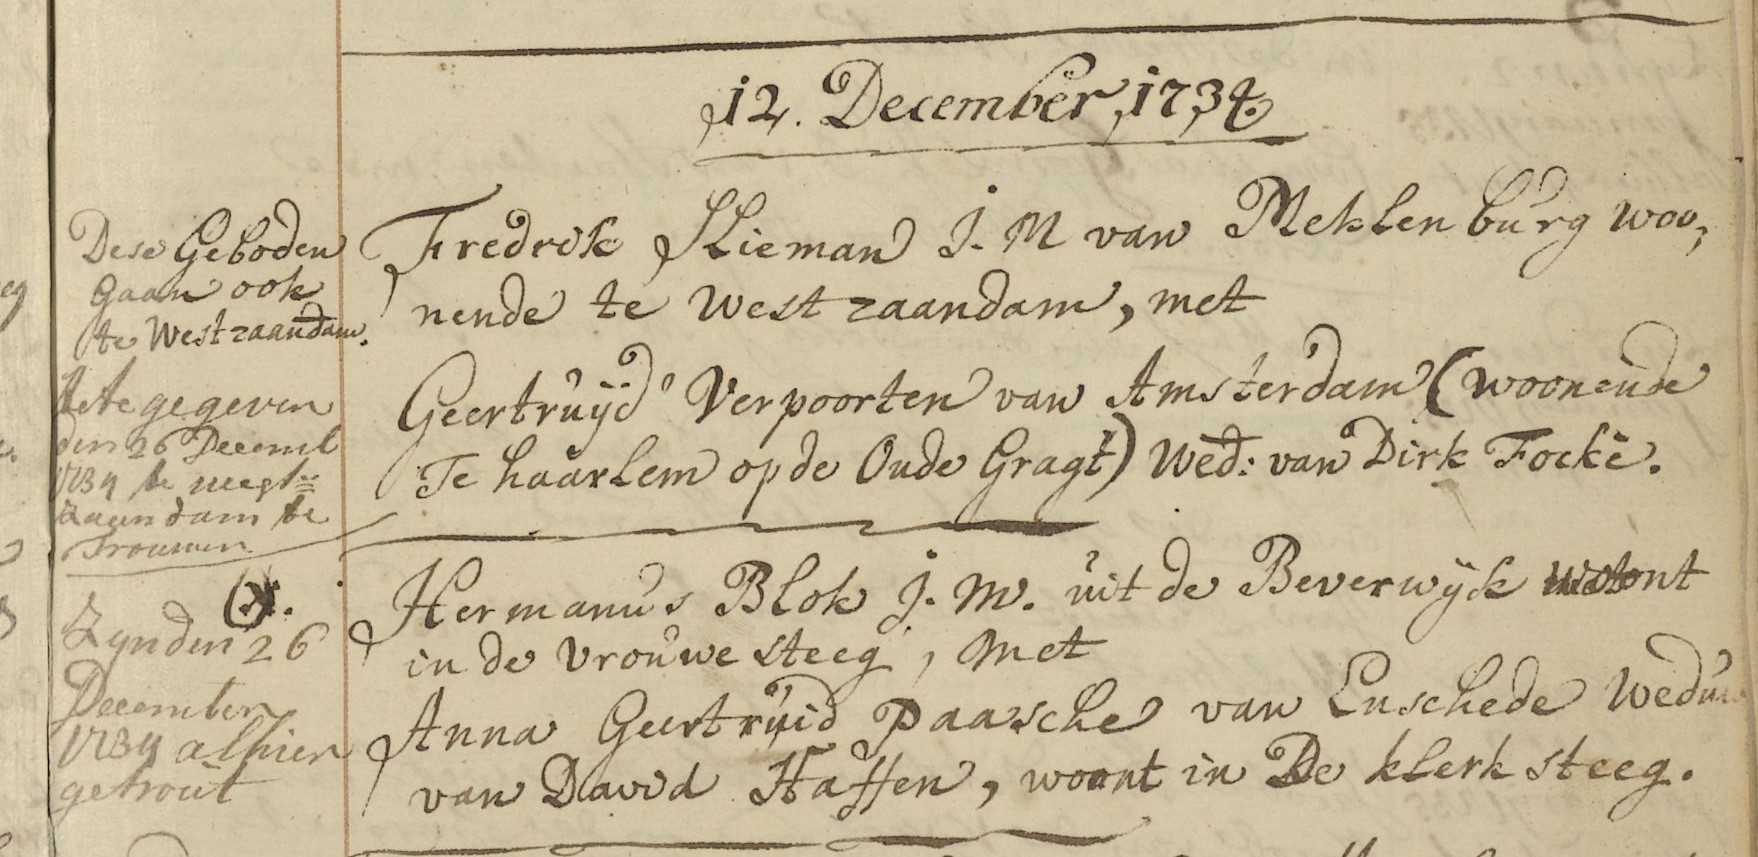 12. December, 1734.
Dese Geboden
Gaan ook
te West zaandam.
Acte gegeven
den 26 Decemb
1734 te west=
zaandam te
Trouwen
Fredrik Slieman J. M van Meklenburg woo,
nende te West zaandam, met
Geertruijd Verpoorten van Amsterdam (woonende
Te haarlem op de Oude Gragt) Wed: van Dirk Focke.
(x).
Zyn den 26
December
1734 alhier
getrout
Hermanus Blok J. M. uit de Beverwijk wont
in de vrouwe steeg, met
Anna Geertruid Paasche van Enschede Weduw
van David Haffen, woont in De klerk steeg.